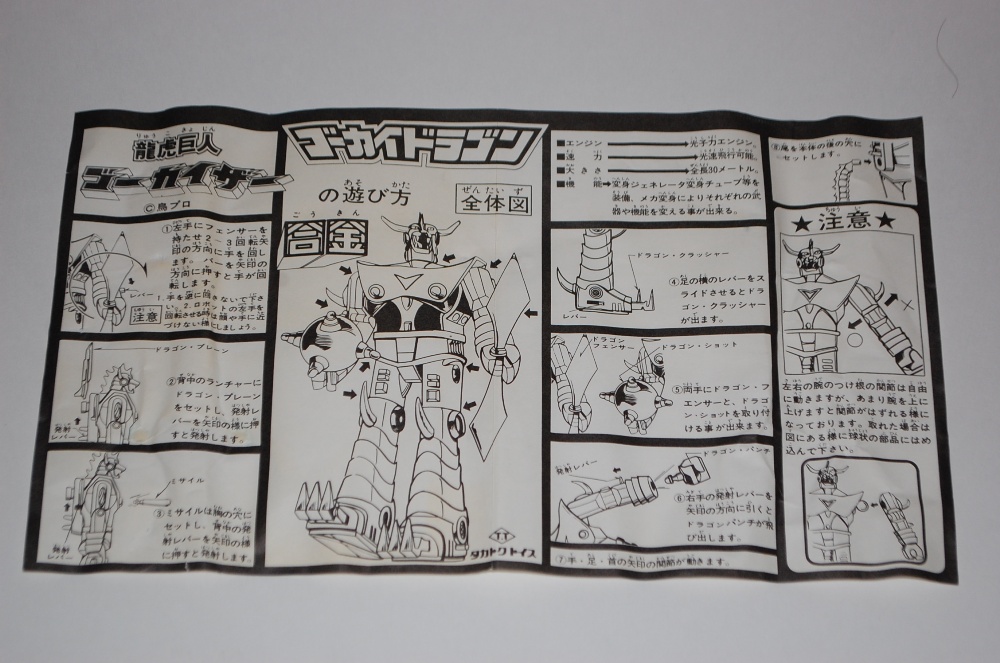 りゅう こ きょ じん
龍虎巨人
ゴーカイザー
©鳥プロ
①左手にフェンサーを
持たせ2〜3回転矢
印の方向に手を回し
ます。バーを矢印の
方向に押すと手が回
転します。
レバー
注意
1.手を逆に回さないで下さ
い。2.ロボットの左手を
回転させる時は顔や手に近
づけない様にしましょう。
ドラゴン・プレーン
②背中のランチャーに
ドラゴン・プレーン
をセットし、発射レ
バーを矢印の様に押
すと発射します。
発射
レバー
ミサイル
③ミサイルは胸の穴に
セットし、背中の発
射レバーを矢印の様
に押すと発射します。
発射
レバー
ゴーカイドラゴン
あそ かた
の遊び方
ぜんたいず
全体図
ごうきん
合金
TT
タカトクトイス
■エンジン→光子力エンジン。
■速力→光速飛行可能。
■大きさ→全長30メートル。
■機能→変身ジェネレータ変身チューブ等を
装備、メカ変身によりそれぞれの武
器や機能を変える事が出来る。
ドラゴン・クラッシャー
④足の横のレバーをス
ライドさせるとドラ
ゴン・クラッシャー
が出ます。
レバー
ドラゴン
フェンサー
ドラゴン・ショット
⑤両手にドラゴン・フ
ェンサーと、ドラゴ
ン・ショットを取り付
ける事が出来ます。
ドラゴン・パンチ
発射レバー
⑥右手の発射レバーを
矢印の方向に引くと
ドラゴンパンチが飛
び出します。
⑦手・足・首の矢印の関節が動きます。
⑧尾を本体の後の穴に
セットします。
ちゅうい
★注意★
左右の腕のつけ根の関節は自由
に動きますが、あまり腕を上に
上げますと関節がはずれる様に
なっております。取れた場合は
図にある様に球状の部品にはめ
込んで下さい。